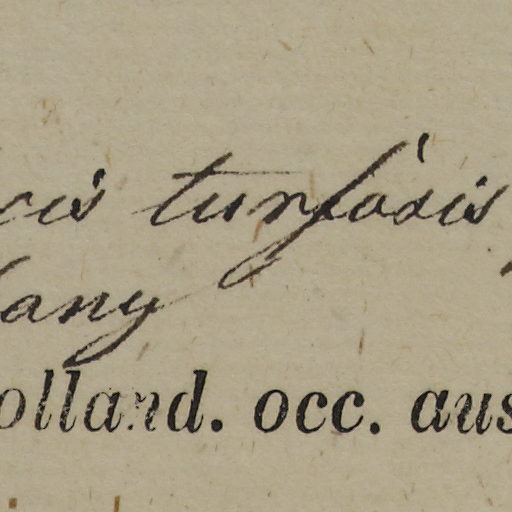 cis turfosis
any
olland. occ. aus